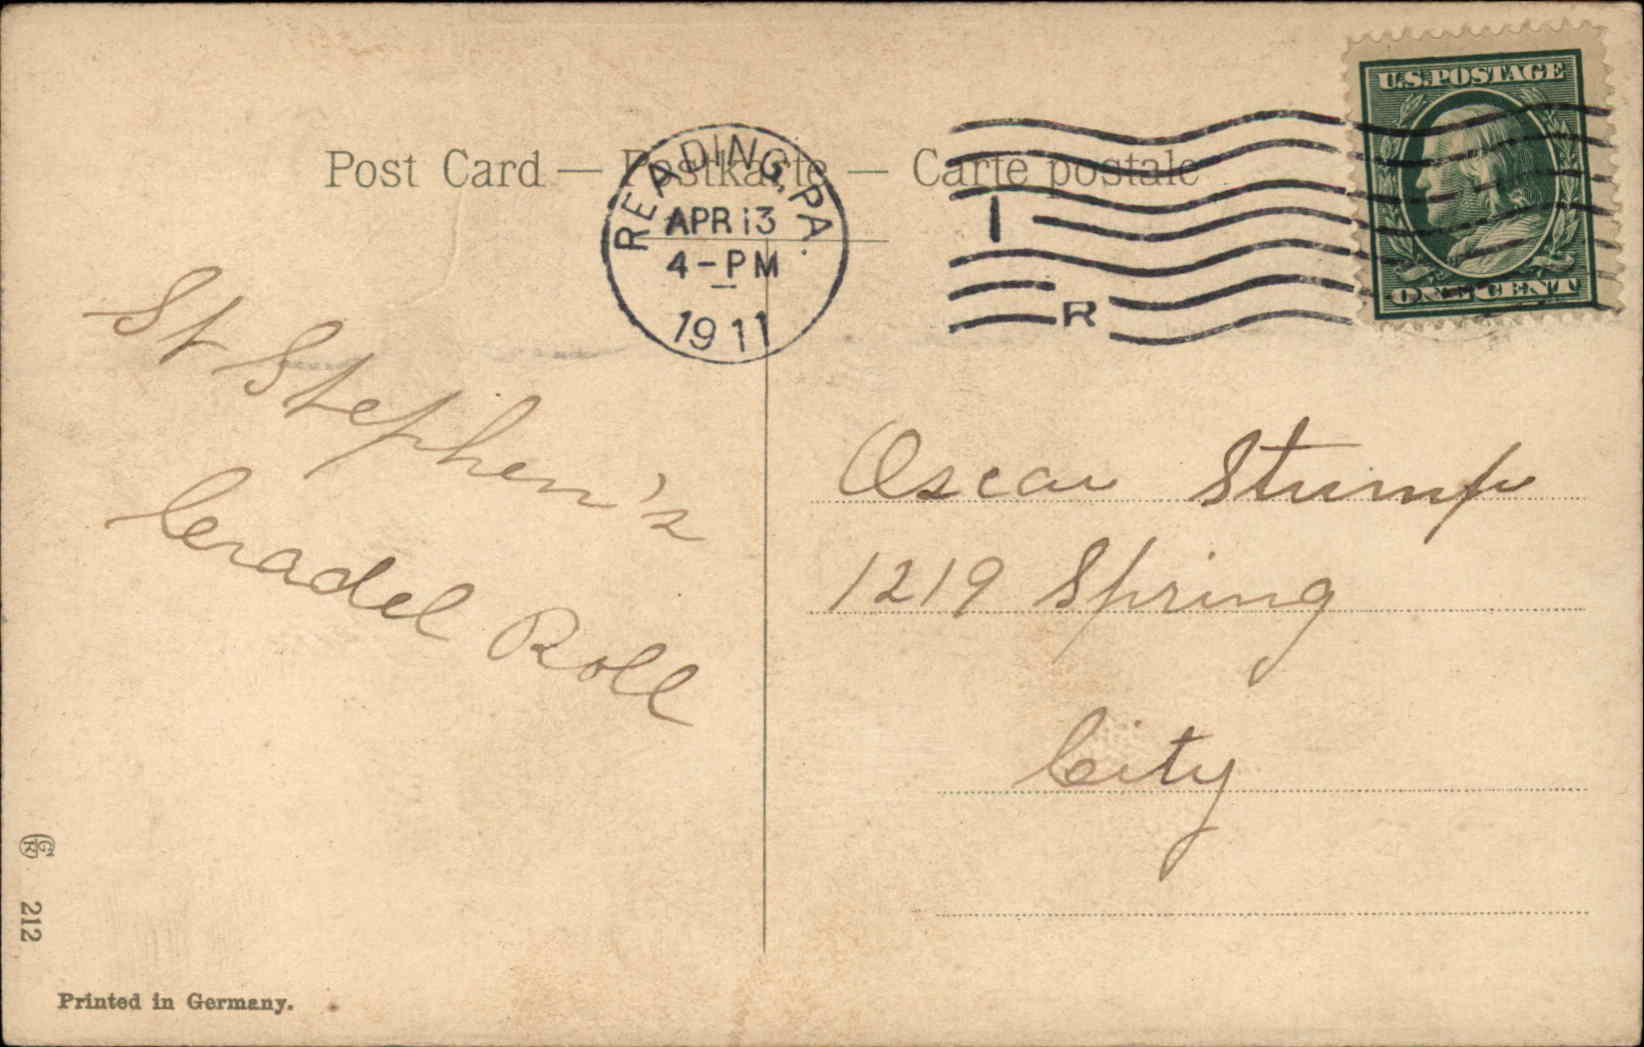 U.S. POSTAGE
ONE CENT
Post Card — Postkarte — Carte postale
READING, PA.
APR 13
4-PM
1911
1
R
St Stephen's
Cradel Roll
Oscar Stump
1219 Spring
City
GK
212
Printed in Germany.